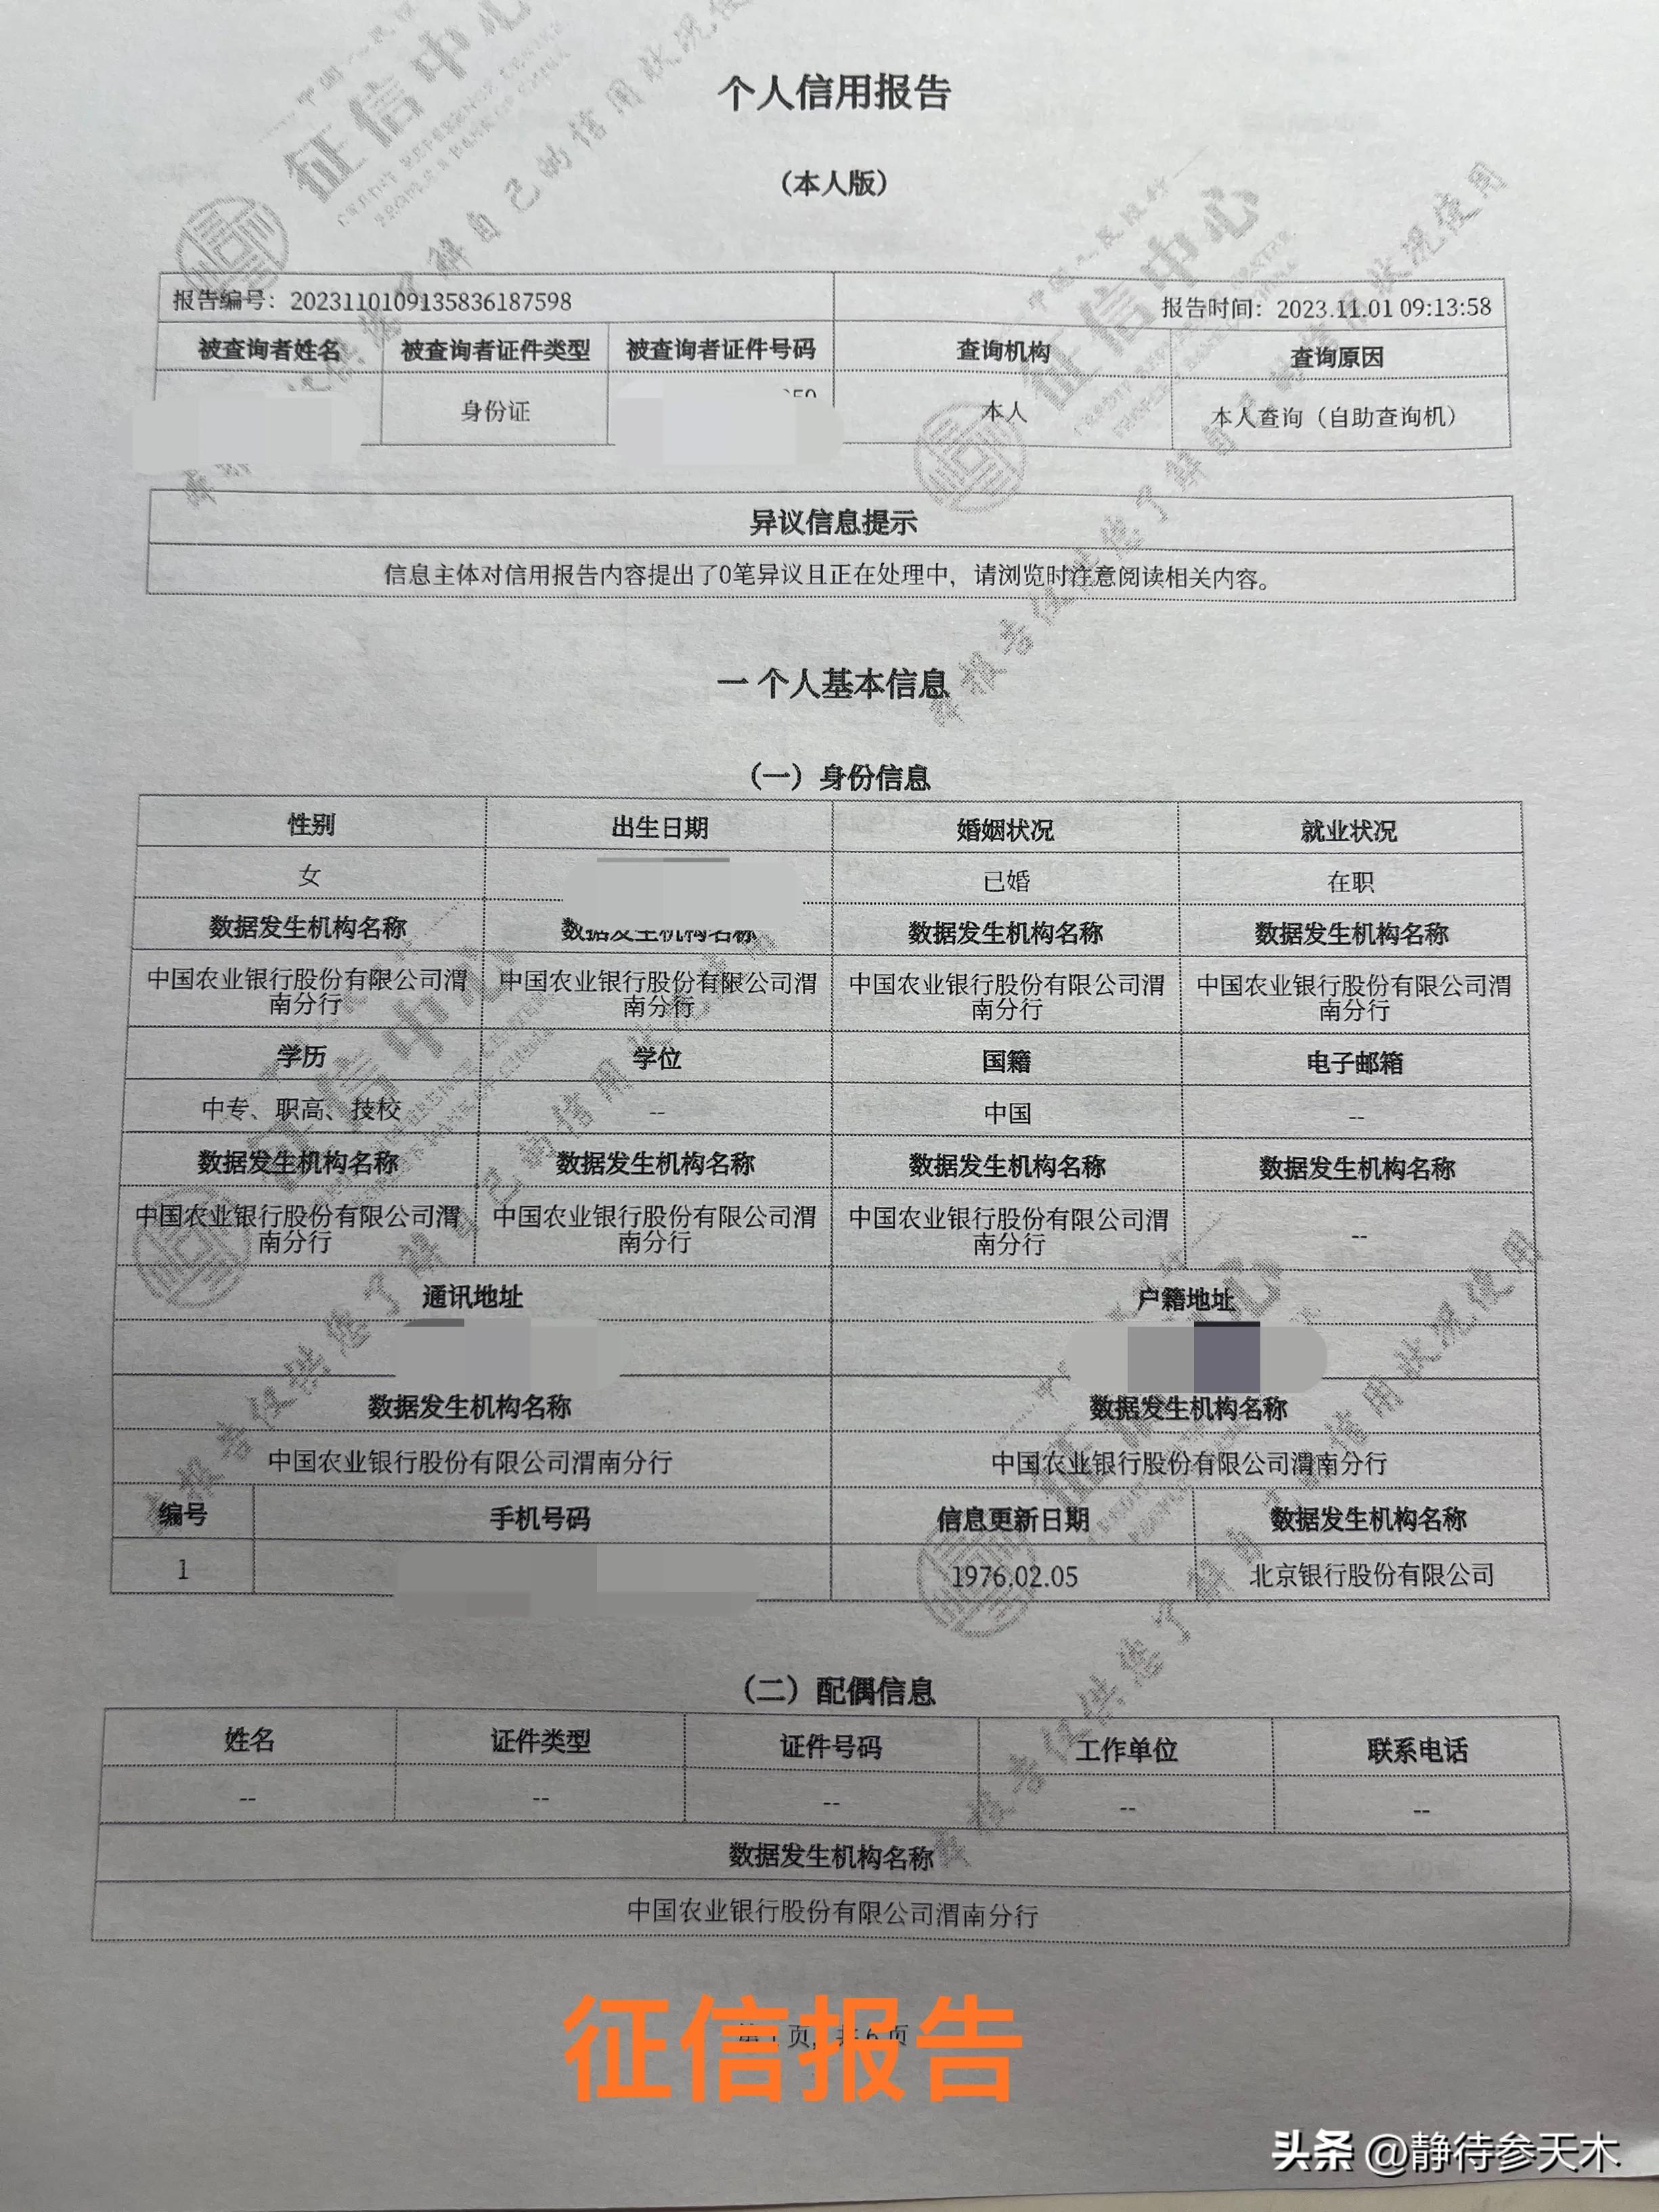 个人信用报告
（本人版）
报告编号：2023110109135836187598 报告时间：2023.11.01 09:13:58
被查询者姓名 被查询者证件类型 被查询者证件号码 查询机构 查询原因
身份证 本人 本人查询（自助查询机）
异议信息提示
信息主体对信用报告内容提出了0笔异议且正在处理中，请浏览时注意阅读相关内容。
一 个人基本信息
（一）身份信息
性别 出生日期 婚姻状况 就业状况
女 已婚 在职
数据发生机构名称 数据发生机构名称 数据发生机构名称 数据发生机构名称
中国农业银行股份有限公司渭 中国农业银行股份有限公司渭 中国农业银行股份有限公司渭 中国农业银行股份有限公司渭
南分行 南分行 南分行 南分行
学历 学位 国籍 电子邮箱
中专、职高、技校 -- 中国 --
数据发生机构名称 数据发生机构名称 数据发生机构名称 数据发生机构名称
中国农业银行股份有限公司渭 中国农业银行股份有限公司渭 中国农业银行股份有限公司渭 --
南分行 南分行 南分行
通讯地址 户籍地址
数据发生机构名称 数据发生机构名称
中国农业银行股份有限公司渭南分行 中国农业银行股份有限公司渭南分行
编号 手机号码 信息更新日期 数据发生机构名称
1 1976.02.05 北京银行股份有限公司
（二）配偶信息
姓名 证件类型 证件号码 工作单位 联系电话
-- -- -- -- --
数据发生机构名称
中国农业银行股份有限公司渭南分行
第1页，共6页
征信报告
头条 @静待参天木
征信中心
本报告仅供您了解自己的信用状况使用